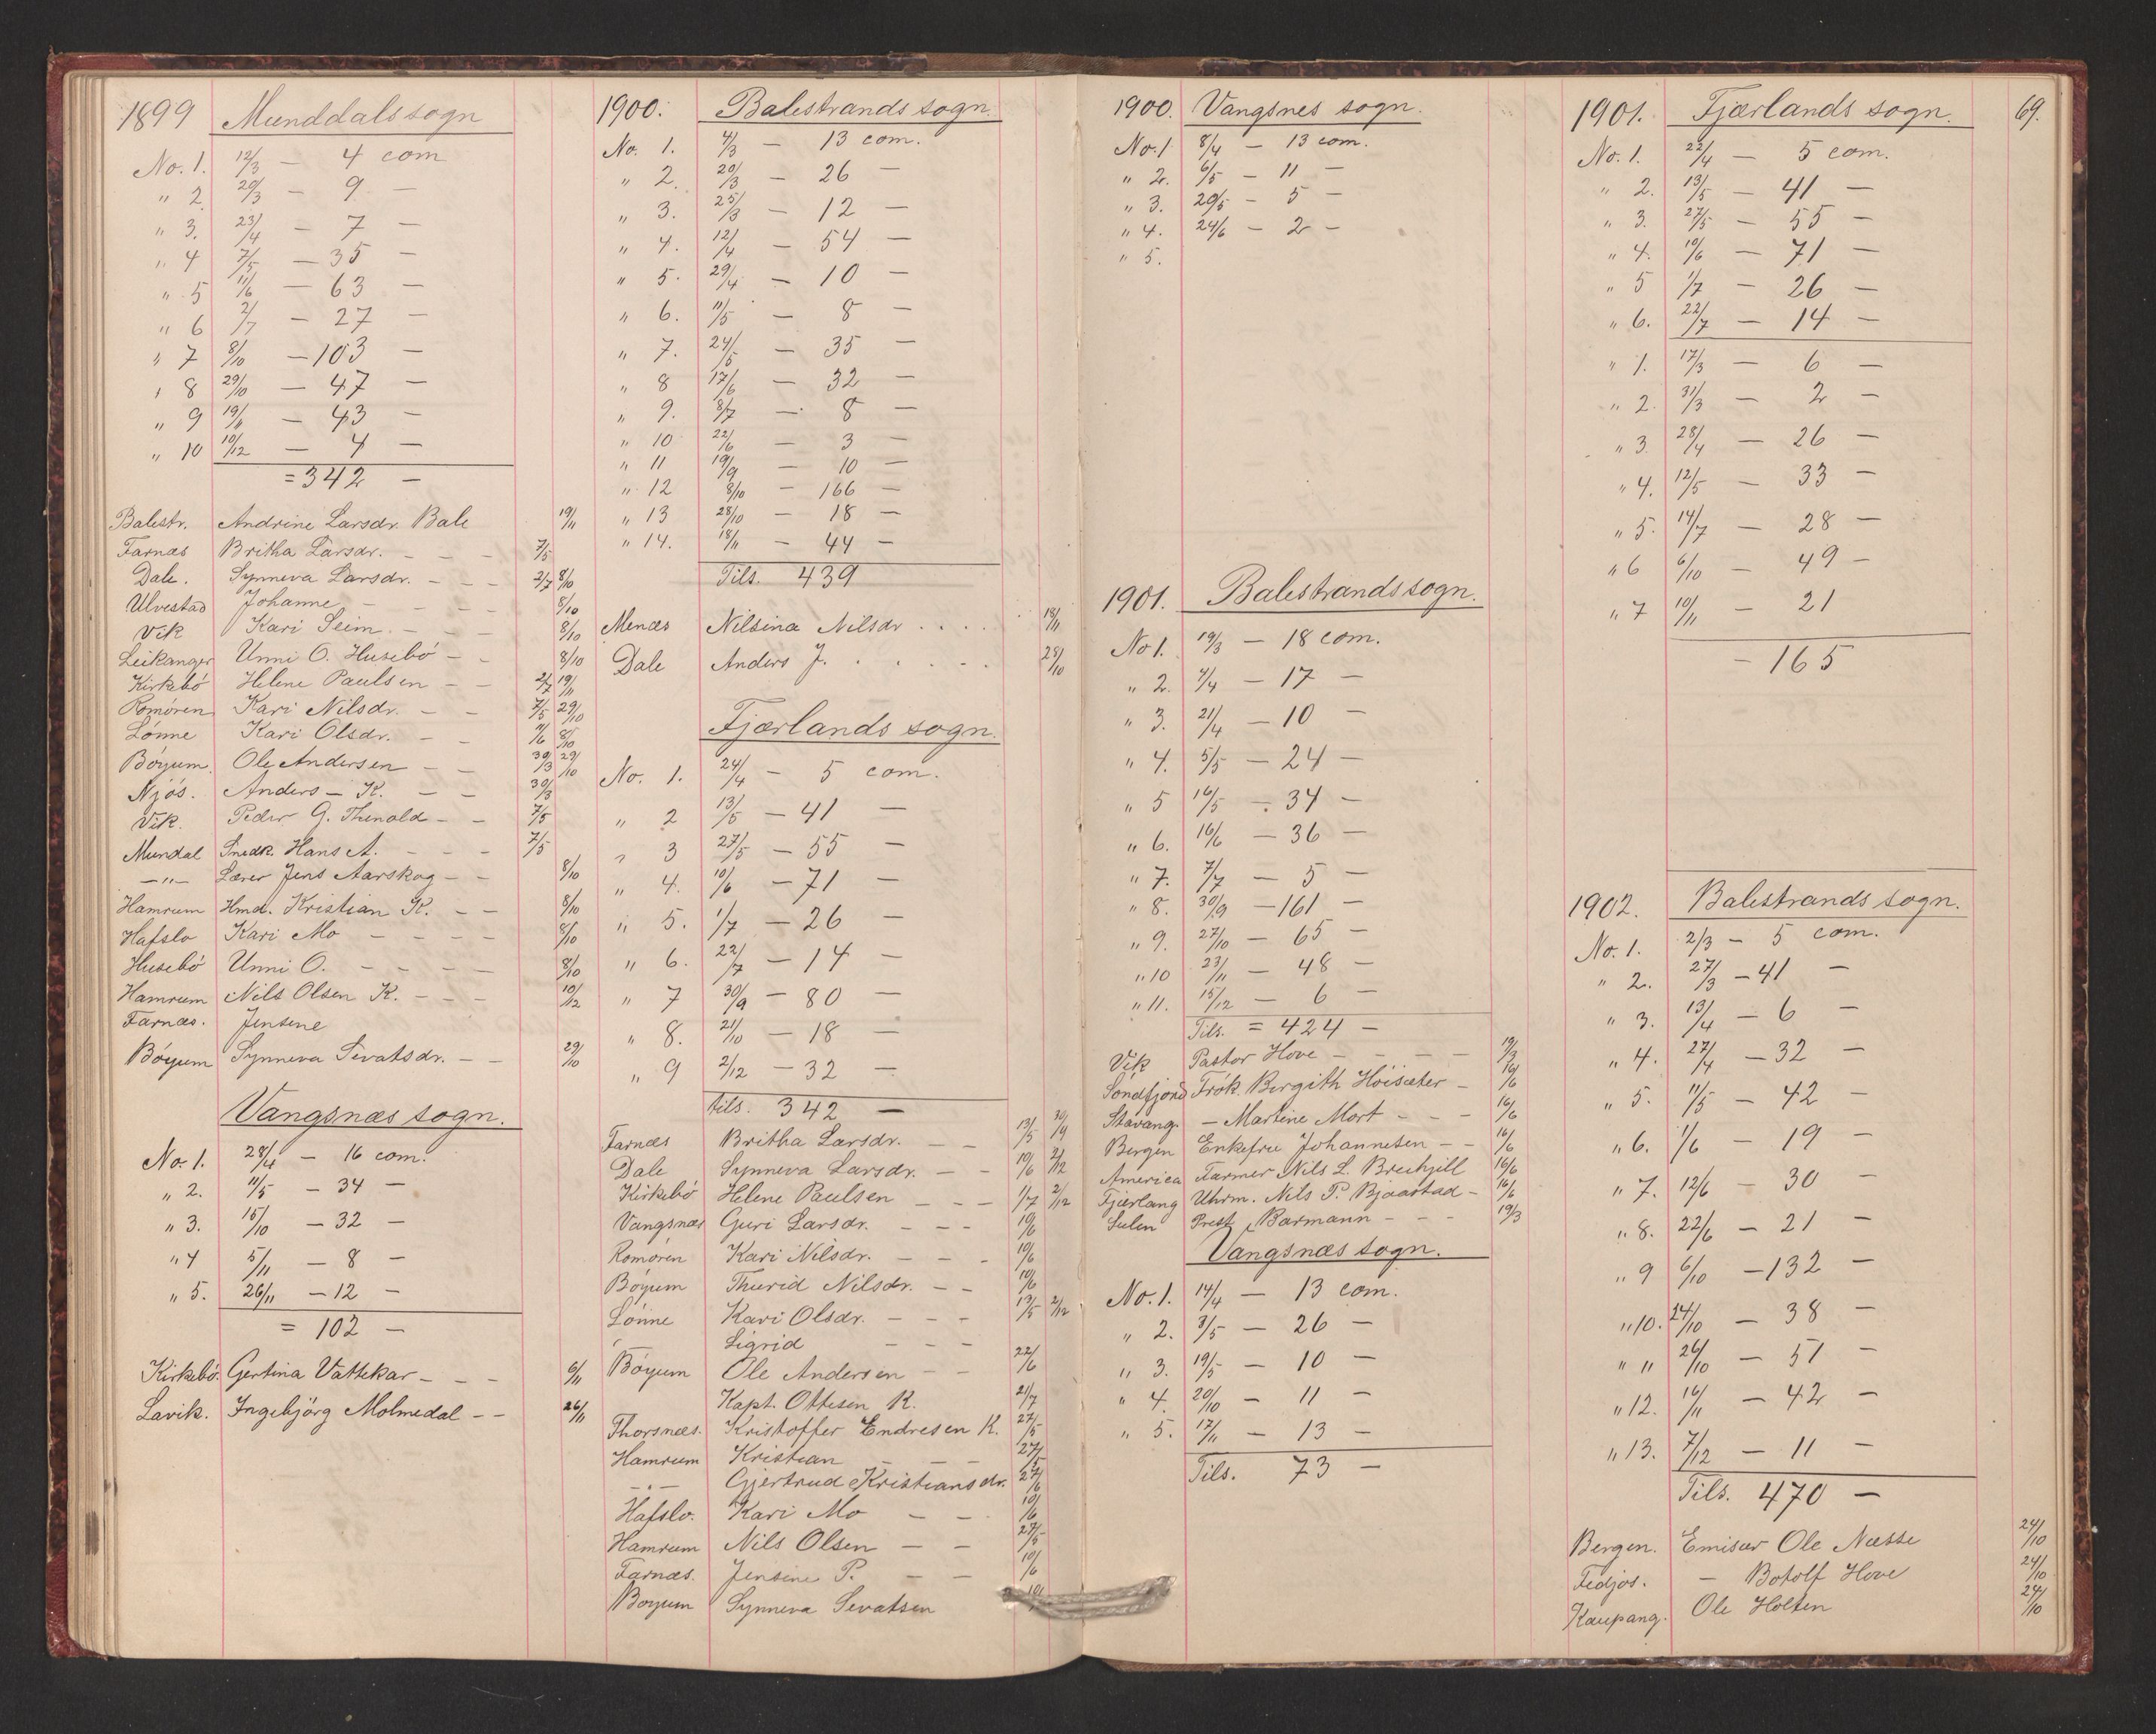 1899 Munddalssogn
No. 1. 12/3 — 4 com
" 2. 29/3 — 9 —
" 3. 23/4 — 7 —
" 4 7/5 — 35 —
" 5 11/6 — 63 —
" 6 2/7 — 27 —
" 7 8/10 — 103 —
" 8 29/10 — 47 —
" 9 19/11 — 43 —
" 10 10/12 — 4 —
= 342 —
Balestr. Andrine Larsdr. Bale 19/11
Farnæs Britha Larsdr. - - - 7/5
Dale. Synneva Larsdr. - - - 2/7 8/10
Ulvestad Johanne - - - - 8/10
Vik Kari Seim - - - 8/10
Leikanger Unni O. Husebö - - 8/10
Kirkebö Helene Paulsen - - 2/7 19/11
Romören Kari Nilsdr. - - 7/5 29/10
Lönne Kari Olsdr. - - 11/6 8/10
Böyum. Ole Andersen - - 30/3 29/10
Njös. Anders - K. - - 30/3
Vik. Peder G. Thenold - - 7/5
Mundal Snedk. Hans A. - - - 7/5
-"- Lærer Jens Aarskog - - 8/10
Hamrum Hmd. Kristian K. - - 8/10
Hafslo Kari Mo - - - - 8/10
Husebö Unni O. - - - - 8/10
Hamrum Nils Olsen K. - - - 10/12
Farnæs. Jensine
Böyum Synneva Sivatsdr. - - 29/10
Vangsnæs sogn.
No. 1. 28/4 — 16 com.
" 2. 11/5 — 34 —
" 3. 15/10 — 32 —
" 4 5/11 — 8 —
" 5. 26/11 — 12 —
= 102 —
Kirkebö. Gertina Vattekar - - - 6/11
Lavik. Ingebjörg Molmedal - - 26/11
1900. Balestrands sogn.
No. 1. 4/3 — 13 com.
" 2. 20/3 — 26 —
" 3. 25/3 — 12 —
" 4. 12/4 — 54 —
" 5. 29/4 — 10 —
" 6. 11/5 — 8 —
" 7. 24/5 — 35 —
" 8 17/6 — 32 —
" 9. 8/7 — 8 —
" 10 22/6 — 3 —
" 11 19/9 — 10 —
" 12 8/10 — 166 —
" 13 28/10 — 18 —
" 14. 18/11 — 44 —
Tils. 439
Menæs Nilsina Nilsdr . . . . 18/11
Dale Anders J. . . . . . 28/10
Fjærlands sogn.
No. 1. 24/4 — 5 com.
" 2 13/5 — 41 —
" 3 27/5 — 55 —
" 4. 10/6 — 71 —
" 5. 1/7 — 26 —
" 6. 22/7 — 14 —
" 7 30/9 — 80 —
" 8. 21/10 — 18 —
" 9 2/12 — 32 —
tils. 342 —
Farnæs Britha Larsdr. - - 13/5 30/9
Dale Synneva Larsdr. - - 10/6 2/12
Kirkebö Helene Paulsen - - - 1/7 2/12
Vangsnæs Guri Larsdr. - - - 10/6
Romören Kari Nilsdr. - - - 10/6
Böyum Thurid Nilsdr. - - 10/6
Lönne Kari Olsdr. - - - 13/5 2/12
Sigrid - - -
Böyum Ole Andersen - - 22/6
Kapt. Ottesen K. 21/7
Thorsnæs. Kristoffer Endresen K. 27/5
Hamrum Kristian - - - 27/5
-"- Gjertrud Kristiansdr. 27/6
Hafslo. Kari Mo - - 10/6
Hamrum Nils Olsen - - 27/5
Farnæs. Jensine P. - - 10/6
Böyum Synneva Sevatsen
1900. Vangsnes sogn.
No. 1 8/4 — 13 com.
" 2. 6/5 — 11 —
" 3. 20/5 — 5 —
" 4. 24/6 — 2 —
" 5.
1901. Balestrandssogn.
No 1. 19/3 — 18 com.
" 2. 4/4 — 17 —
" 3. 21/4 — 10 —
" 4. 5/5 — 24 —
" 5 16/5 — 34 —
" 6. 16/6 — 36 —
" 7. 7/7 — 5 —
" 8. 30/9 — 161 —
" 9. 27/10 — 65 —
" 10 23/11 — 48 —
" 11. 15/12 — 6 —
Tils. = 424 —
Vik Pastor Hove - - - - 19/3
Söndfjord Frök. Bergith Höisæter - 16/6
Stavang. - Martine Mort - - - 16/6
Bergen Enkefru Johannesen - - 16/6
America Farmer Nils L. Brechjell 16/6
Fjærland Uhrm. Nils P. Bjaastad - 16/6
Sulen Prest Barmann - - - 19/3
Vangsnæs sogn.
No. 1. 14/4 — 13 com.
" 2. 3/5 — 26 —
" 3. 19/5 — 10 —
" 4. 20/10 — 11 —
" 5. 17/11 — 13 —
Tils. 73 —
1901. Fjærlands sogn. 69.
No. 1. 22/4 — 5 com.
" 2. 13/5 — 41 —
" 3. 27/5 — 55 —
" 4. 10/6 — 71 —
" 5 1/7 — 26 —
" 6. 22/7 — 14 —
" 1. 17/3 — 6 —
" 2. 31/3 — 2 —
" 3. 28/4 — 26 —
" 4. 12/5 — 33 —
" 5. 14/7 — 28 —
" 6 6/10 — 49 —
" 7 10/11 — 21
— 165
1902. Balestrands sogn.
No. 1. 2/3 — 5 com.
" 2. 27/3 — 41 —
" 3. 13/4 — 6 —
" 4. 27/4 — 32 —
" 5. 11/5 — 42 —
" 6. 1/6 — 19 —
" 7. 12/6 — 30 —
" 8. 22/6 — 21 —
" 9 6/10 — 132 —
" 10. 24/10 — 38 —
" 11 26/10 — 51 —
" 12. 16/11 — 42 —
" 13. 7/12 — 11 —
Tils. 470 —
Bergen. Emisær Ole Næsse 24/10
Fedjos. - Botolf Hove 24/10
Kaupang. Ole Holten 24/10